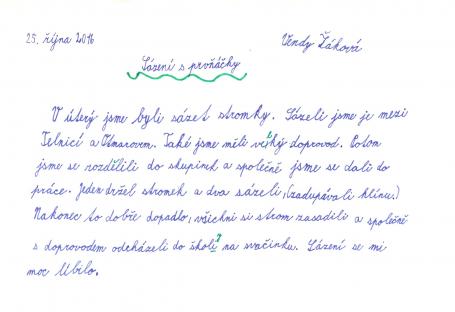 25. října 2016
Vendy Žáková
Sázení s prvňáčky
V úterý jsme byli sázet stromky. Sázeli jsme je mezi
Telnicí a Otmarovem. Také jsme měli velký doprovod. Potom
jsme se rozdělili do skupinek a společně jsme se dali do
práce. Jeden držel stromek a dva sázeli, (zadupávali hlínu.)
Nakonec to dobře dopadlo, všichni si strom zasadili a společně
s doprovodem odcházeli do školy na svačinku. Sázení se mi
moc líbilo.